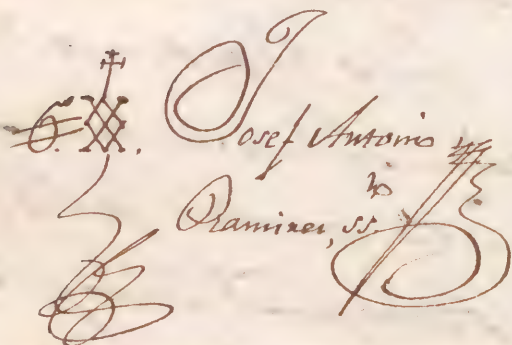 Josef Antonio
Ramirez, ss.
no